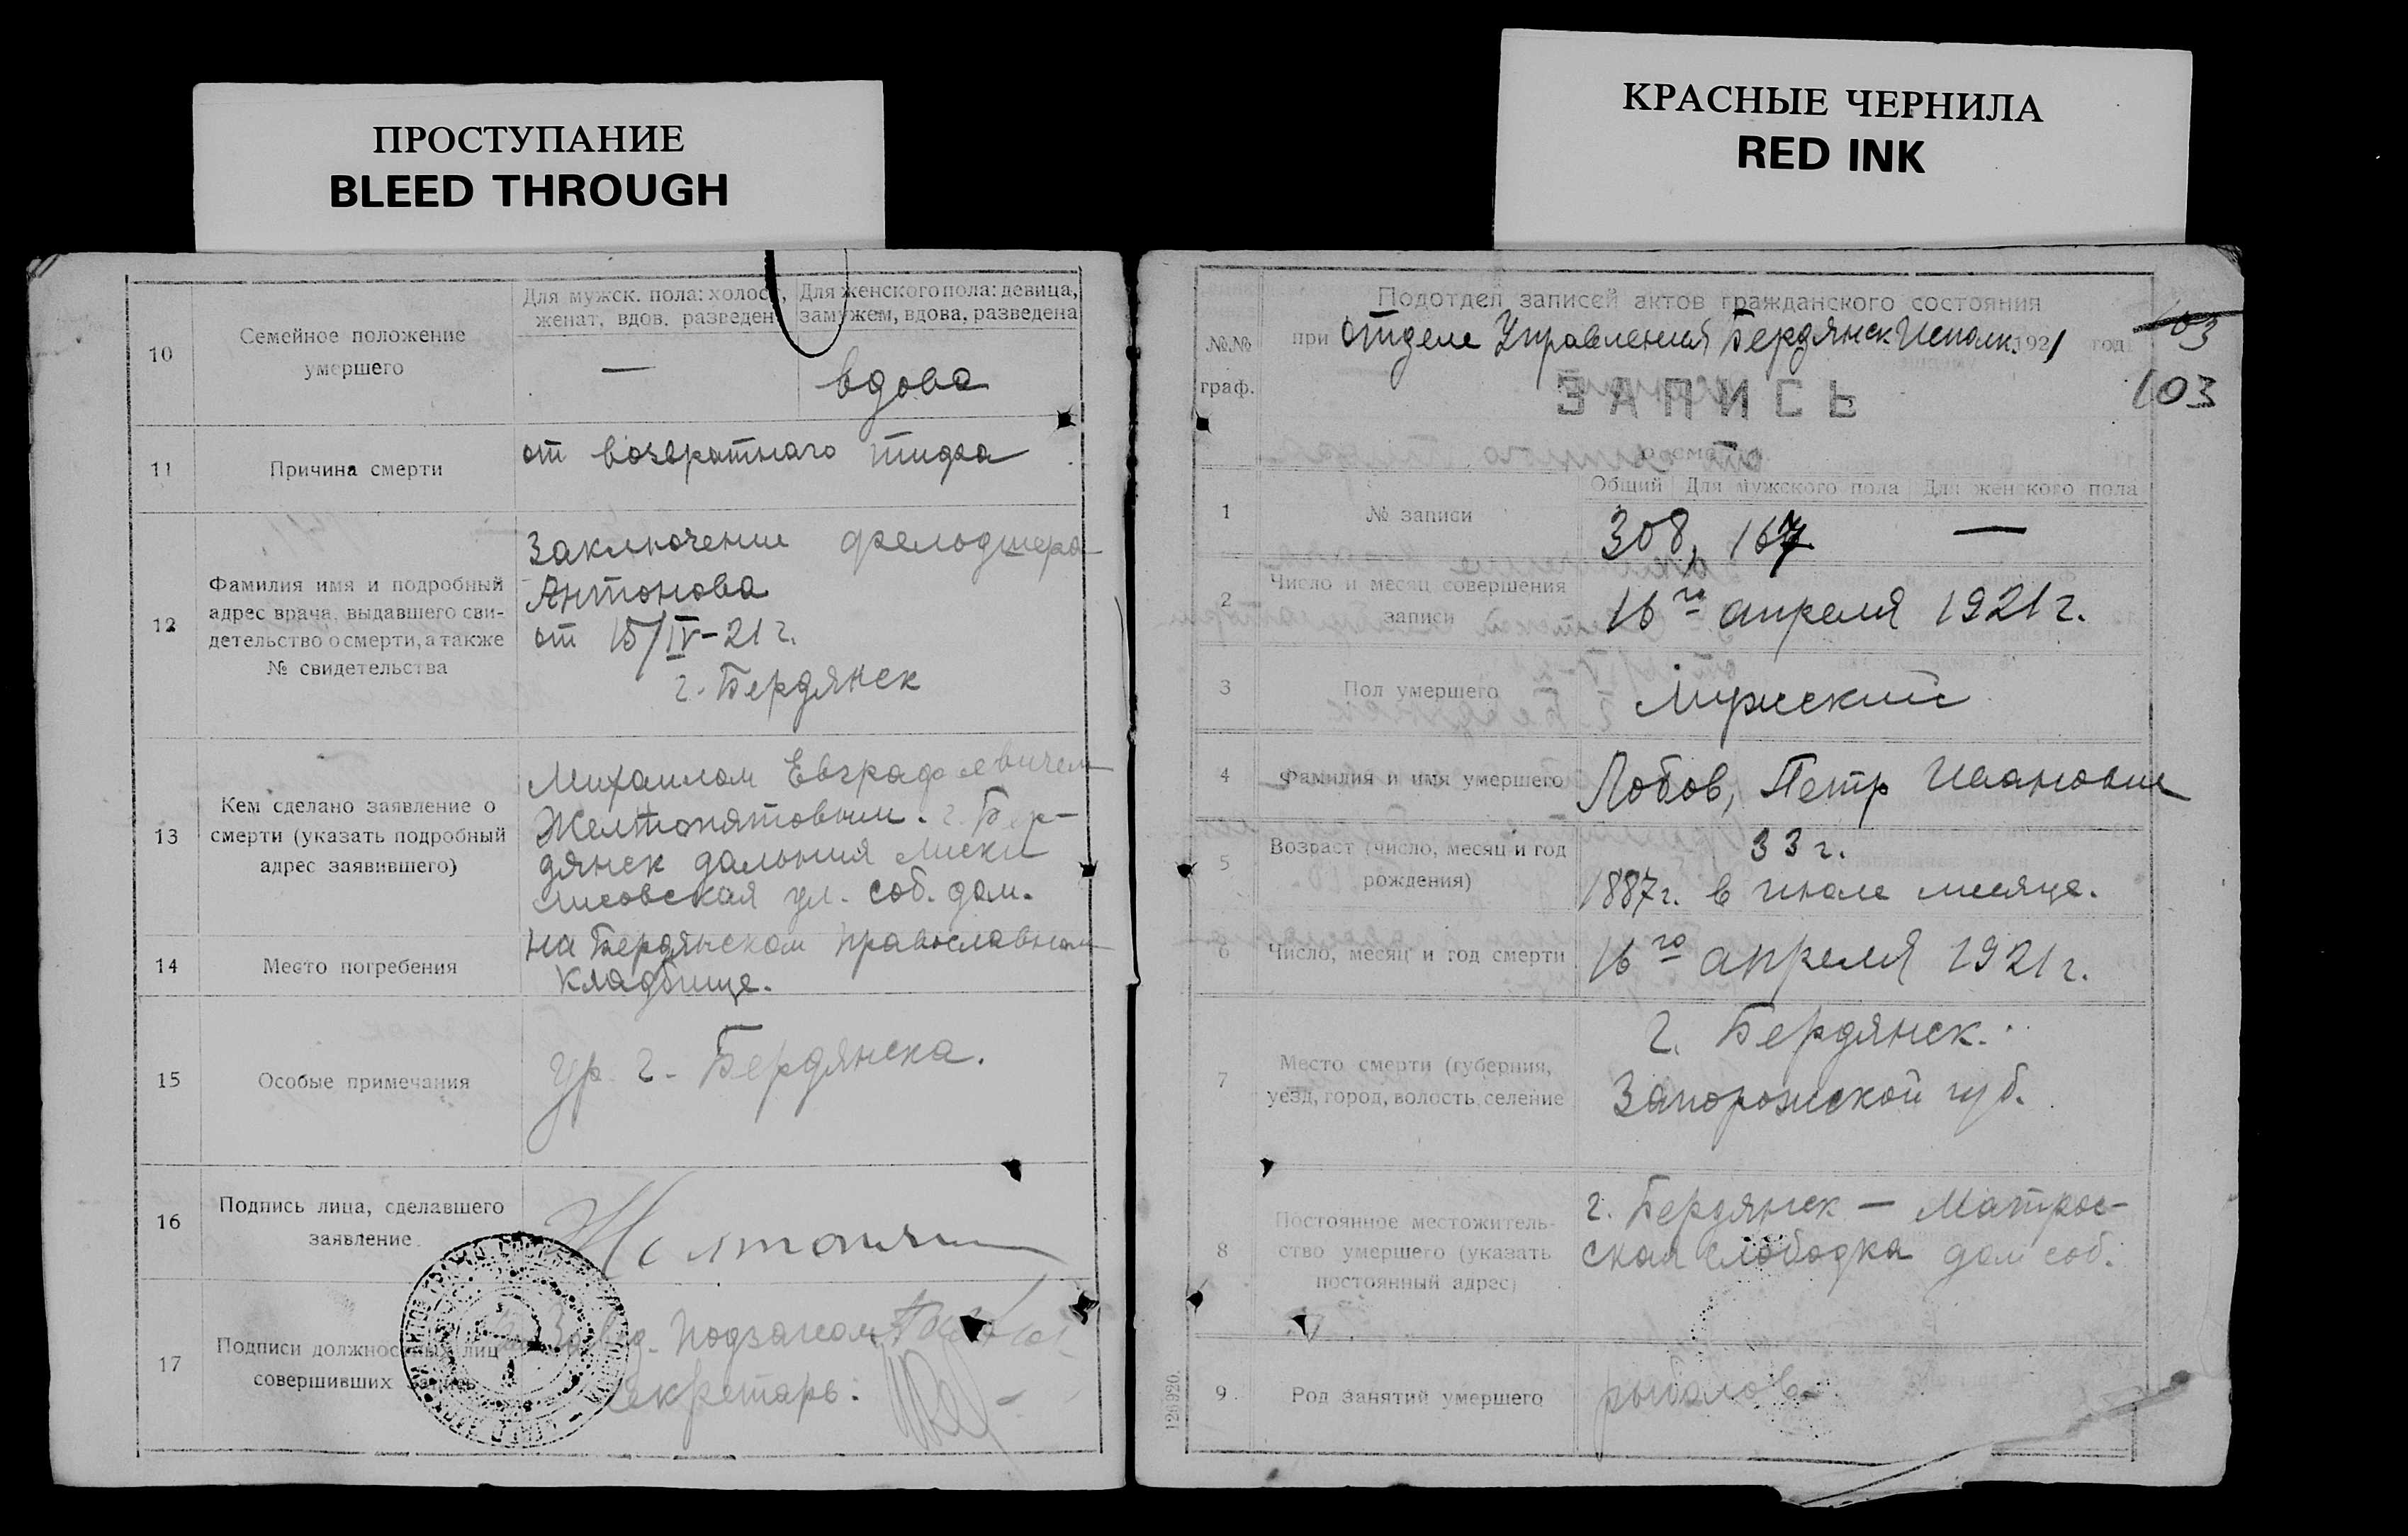 ПРОСТУПАНИЕ
BLEED THROUGH
КРАСНЫЕ ЧЕРНИЛА
RED INK
10
Семейное положение
умершего
Для мужск. пола: холост,
женат, вдов. разведен
Для женского пола: девица,
замужем, вдова, разведена
—
вдова
11
Причина смерти
от возвратнаго тифа
12
Фамилия имя и подробный
адрес врача, выдавшего сви-
детельство о смерти, а также
№ свидетельства
Заключение фельдшера
Антонова
от 15/IV-21 г.
г. Бердянск
13
Кем сделано заявление о
смерти (указать подробный
адрес заявившего)
Михаилом Евграфовичем
Желтопятовым. г. Бер-
дянск дальния
ул. соб. дом.
14
Место погребения
на Бердянском православном
кладбище.
15
Особые примечания
ур. г. Бердянска.
16
Подпись лица, сделавшего
заявление
17
Подписи должностных лиц
совершивших запись
Завед. Подзагсом
Секретарь.
Подотдел записей актов гражданского состояния
№№
граф.
при Отделе Управления Бердянск Исполк. 1921 год
103
103
ЗАПИСЬ
Общий
Для мужского пола
Для женского пола
1
№ записи
308, 167 —
2
Число и месяц совершения
записи
16го апреля 1921 г.
3
Пол умершего
Мужский
4
Фамилия и имя умершего
Лобов, Петр Иванович
5
Возраст (число, месяц и год
рождения)
33 г.
1887 г. в июле месяце.
6
Число, месяц и год смерти
16го апреля 1921 г.
7
Место смерти (губерния,
уезд, город, волость, селение
г. Бердянск.
Запорожской губ.
8
Постоянное местожитель-
ство умершего (указать
постоянный адрес)
г. Бердянск — Матрос-
ская слободка дом соб.
9
Род занятий умершего
рыболов
126920.